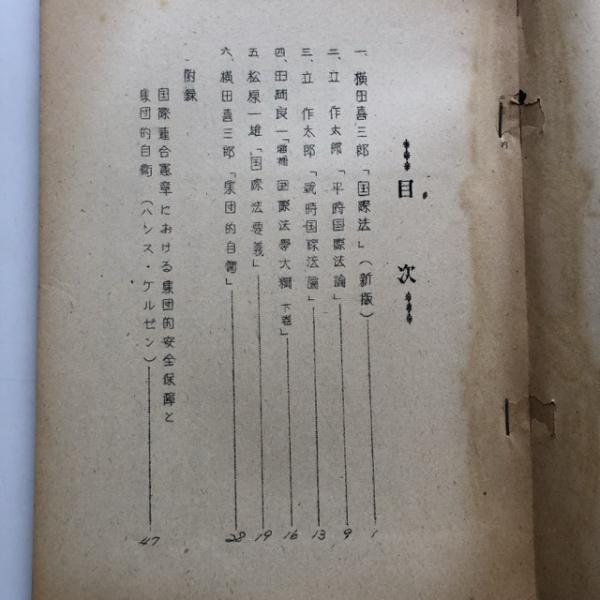 目次
一、横田喜三郎「国際法」(新版) 1
二、立 作太郎「平時国際法論」 9
三、立 作太郎「戦時国際法論」 13
四、田岡良一「増補 国際法学大綱 下巻」 16
五、松原一雄「国際法要義」 19
六、横田喜三郎「集団的自衛」 28
附録
国際連合憲章における集団的安全保障と
集団的自衛(ハンス・ケルゼン) 47